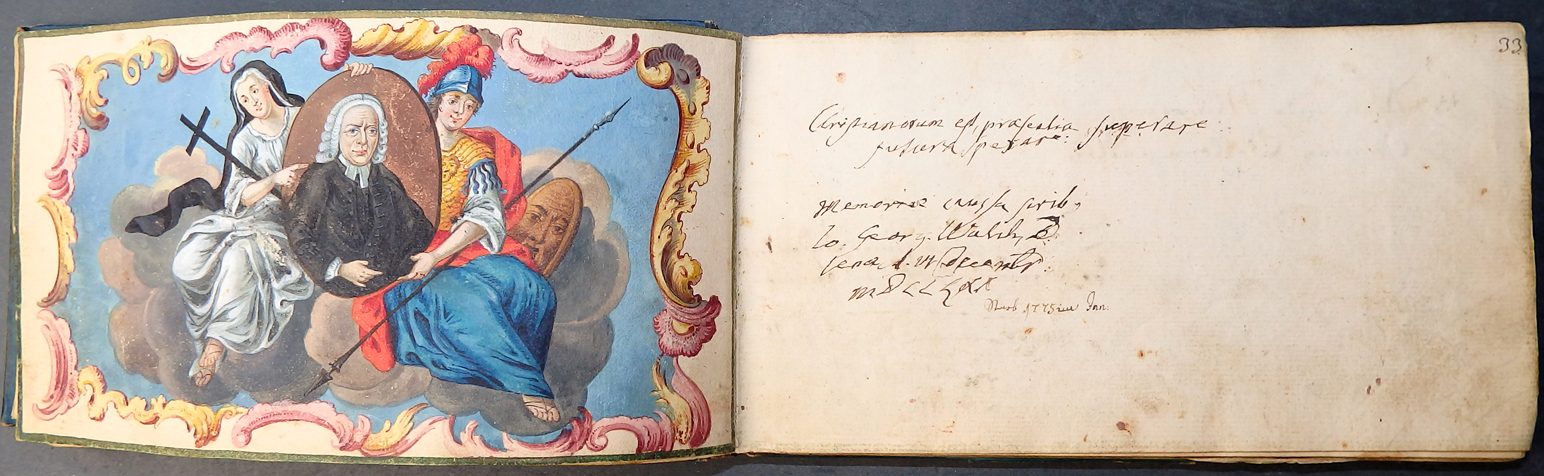 33
Christianorum est, praesentia superare
futura sperare.
Memoriae caussa scrib.
Io. Georg. Walch, D.
Ienae d. VI Decembr.
MDCCLXX
Starb 1775 im Jan.